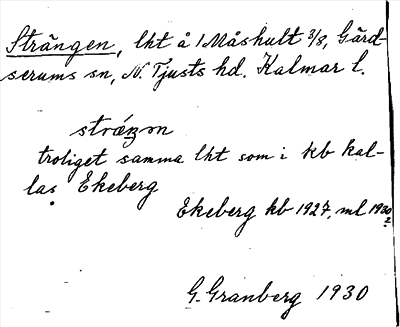 Strängen, lht å 1 Måshult 3/8, Gärd-
serums sn, N. Tjusts hd. Kalmar l.
troliget samma lht som i kb kal-
las Ekeberg
Ekeberg kb 1927, ml 1930
G. Granberg 1930